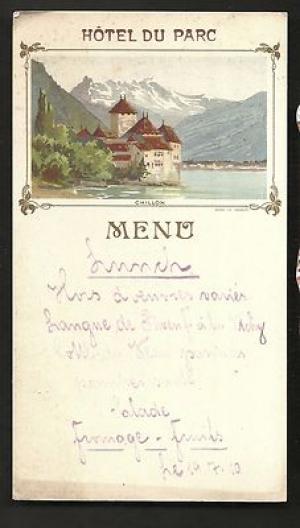 HÔTEL DU PARC
CHILLON
MENU
Lunch
Hors d'œuvres variés
Langue de Bœuf à la Vichy
Veau
Salade
Fromage - Fruits
Le 19.7.10